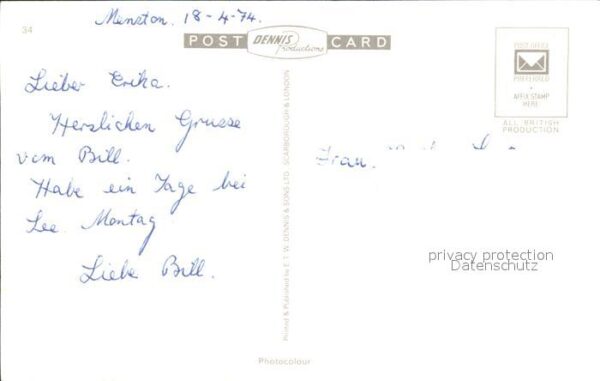 Menston. 18-4-74.
34
POST DENNIS Productions CARD
POST OFFICE
PREFERRED
AFFIX STAMP
HERE
ALL BRITISH
PRODUCTION
Lieber Erika.
Herzlichen Grusse
vom Bill.
Habe ein Tage bei
See. Montag
Liebe Bill.
Printed & Published by E.T.W. DENNIS & SONS LTD. SCARBOROUGH & LONDON
Frau.
privacy protection
Datenschutz
Photocolour